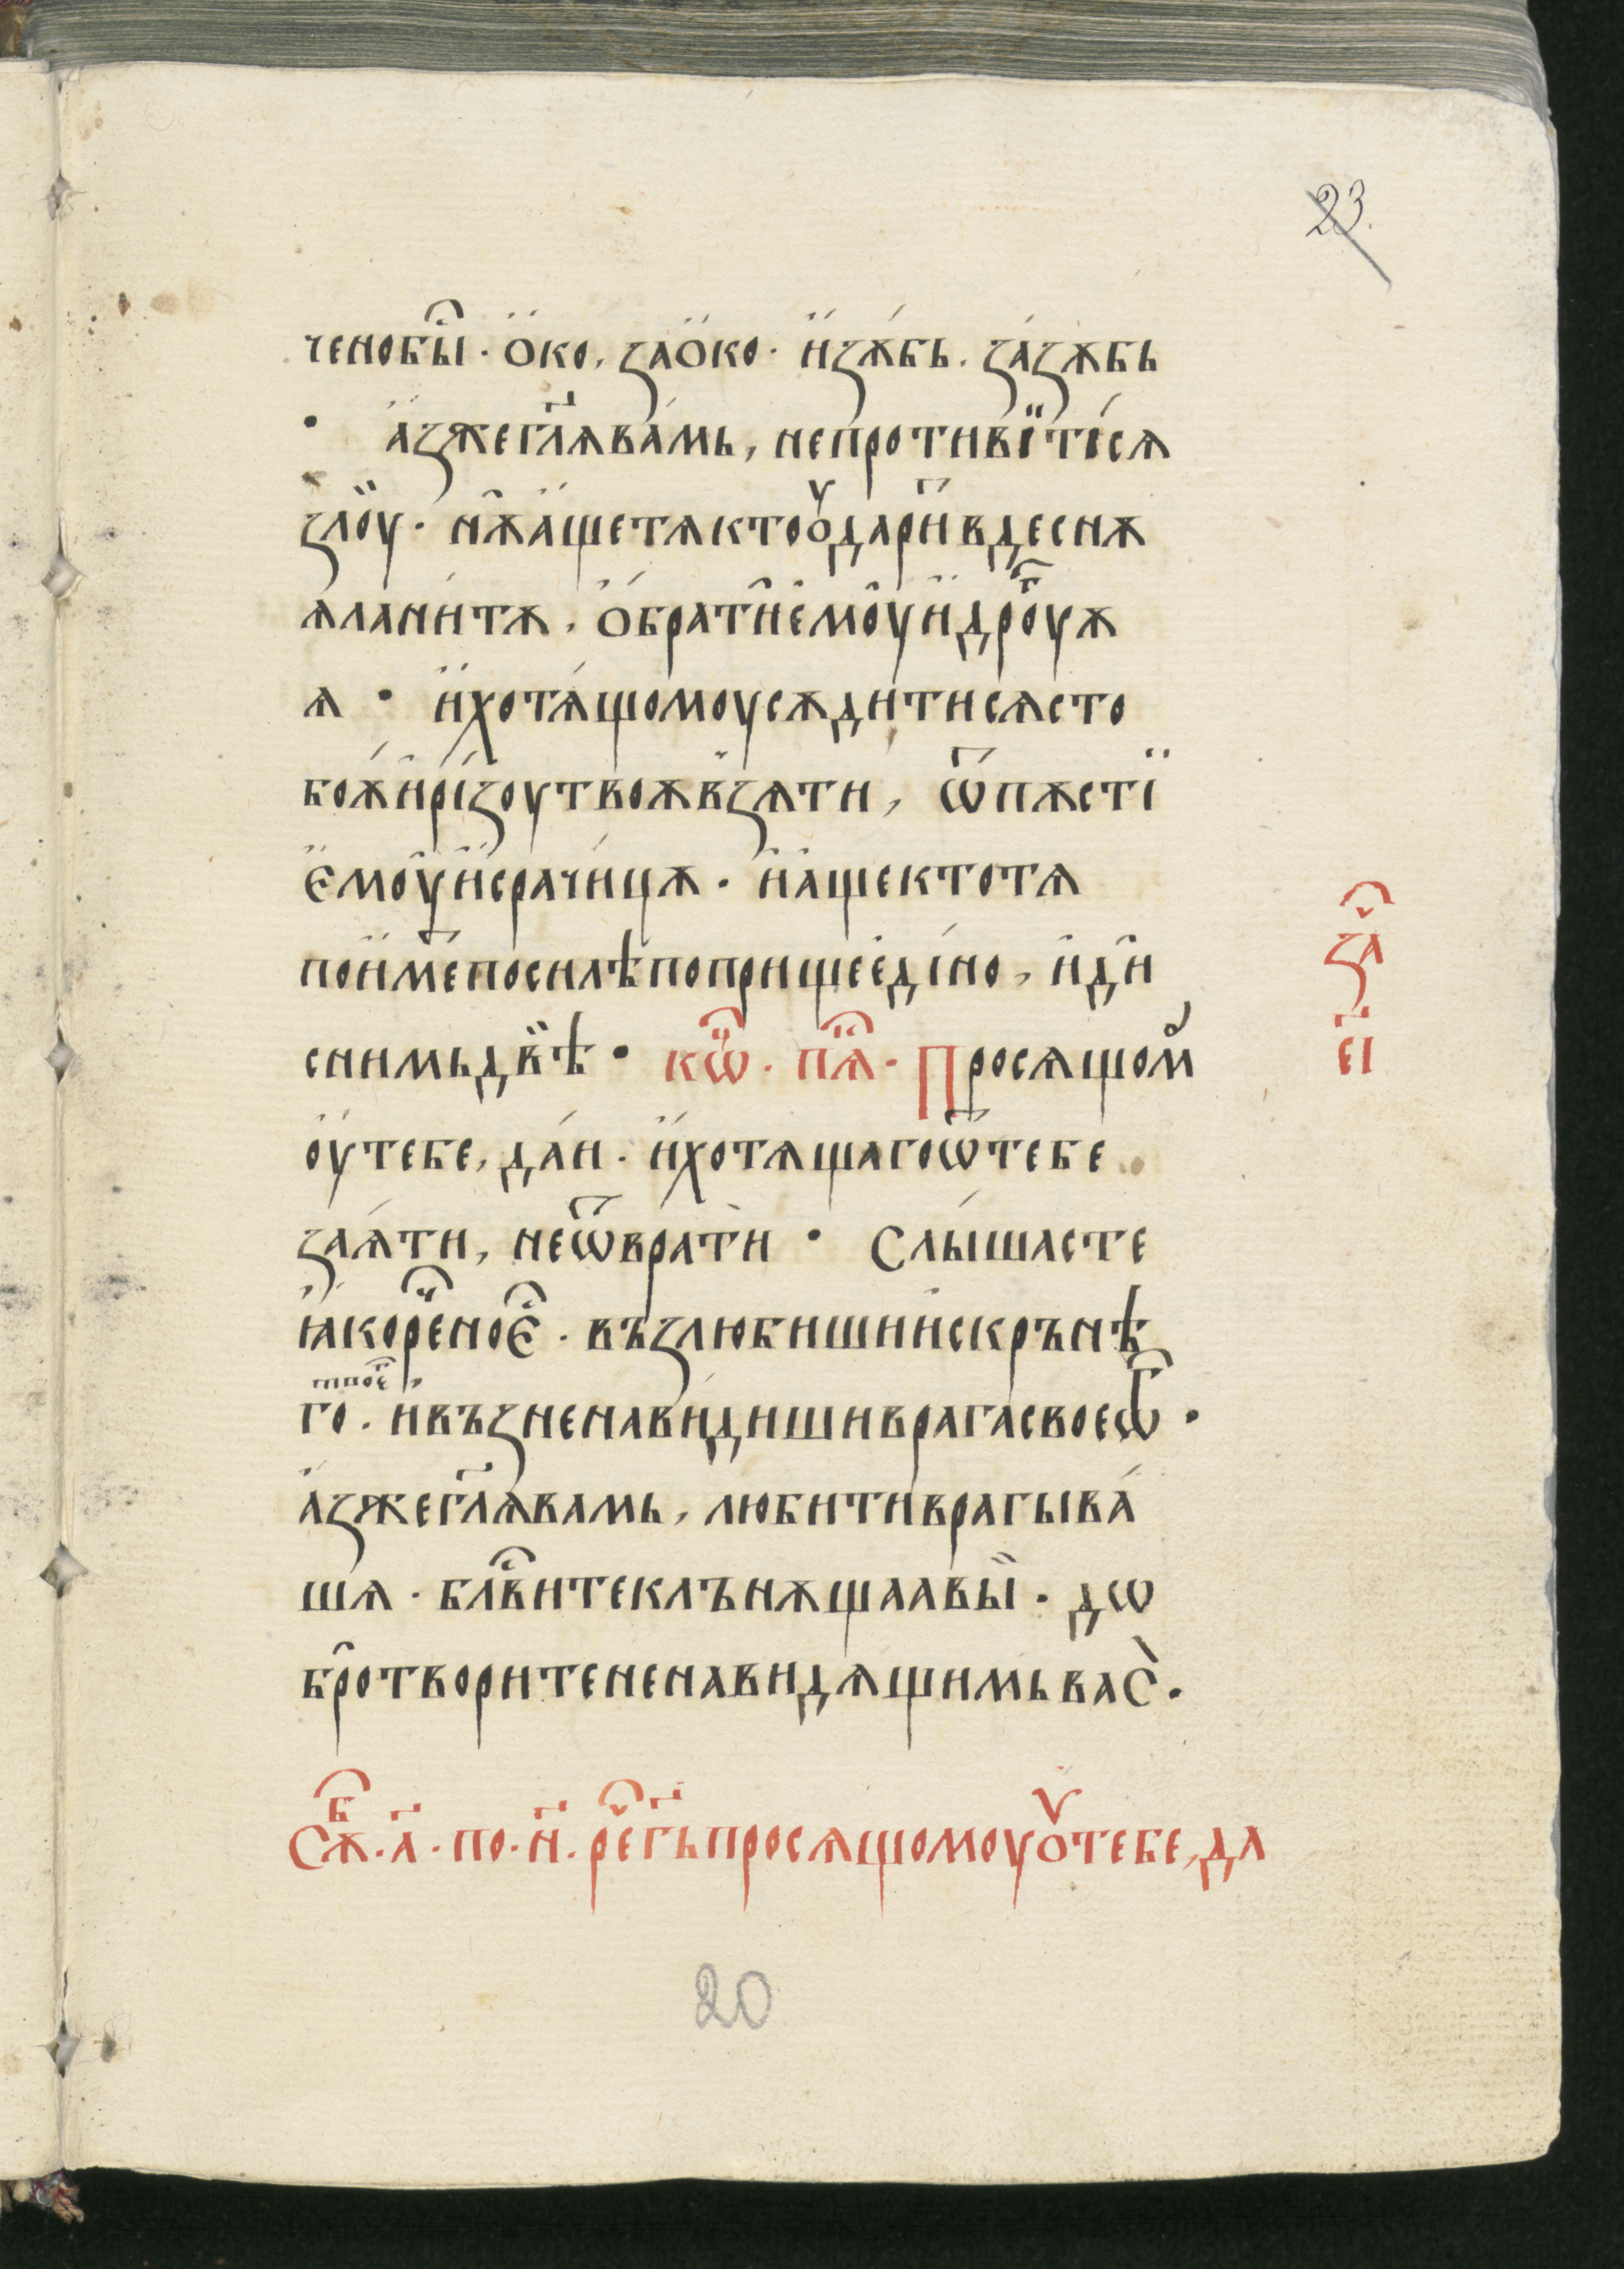 23.
ченобы҇ · Ѻко, заѺко · и҆зѫбь . за́зѫбь
· а҆зжегл҃ѧва́мь, непротивїті́сѧ
зло́у · нѫа҆щетѧктоѹ҆дари҆вдеснѫ
ѧлани́тѫ , Ѻ҆брати҆е҆моу҆и҆дроу҇гѫ
ѧ · и҆хотѧ́щомоусѫди́тисѧсто
боѫ́и҆рі́зоутвоѫвзѧти , ѿпѫстї
Є҆моу҆и҆срачи́цѫ · и҆а҆щектотѧ
пои҆ме́тпосилѣпоприщее҆ді́но , и҆ди҆
снимьдвѣ̀ · кѡ҇н · пѧ҇т · Просѧщом
оу҆тебе , да́и · и҆хотѧщагоѿтебе
заѧ́ти , неѿврати̇ · Слы́шасте
ꙗ҆коре҇нноЄ҇ · възлюбишиискрънѣ
твоег҇
го · ивъзненави́дишиврагасвоеѡг҇ ·
а҆зжегл҃ѧвамь , любитиврагыва́
шѧ · блв҇итеклънѫщаавы̀ · дѡ
бротворитененавидѧщимьваС̀ .
за҇ч
е҃і
Сѫ҇б · а҃ · по · н҃ · ре҇чг҃ьпросѧщомоуѹ҆тебе , да
20